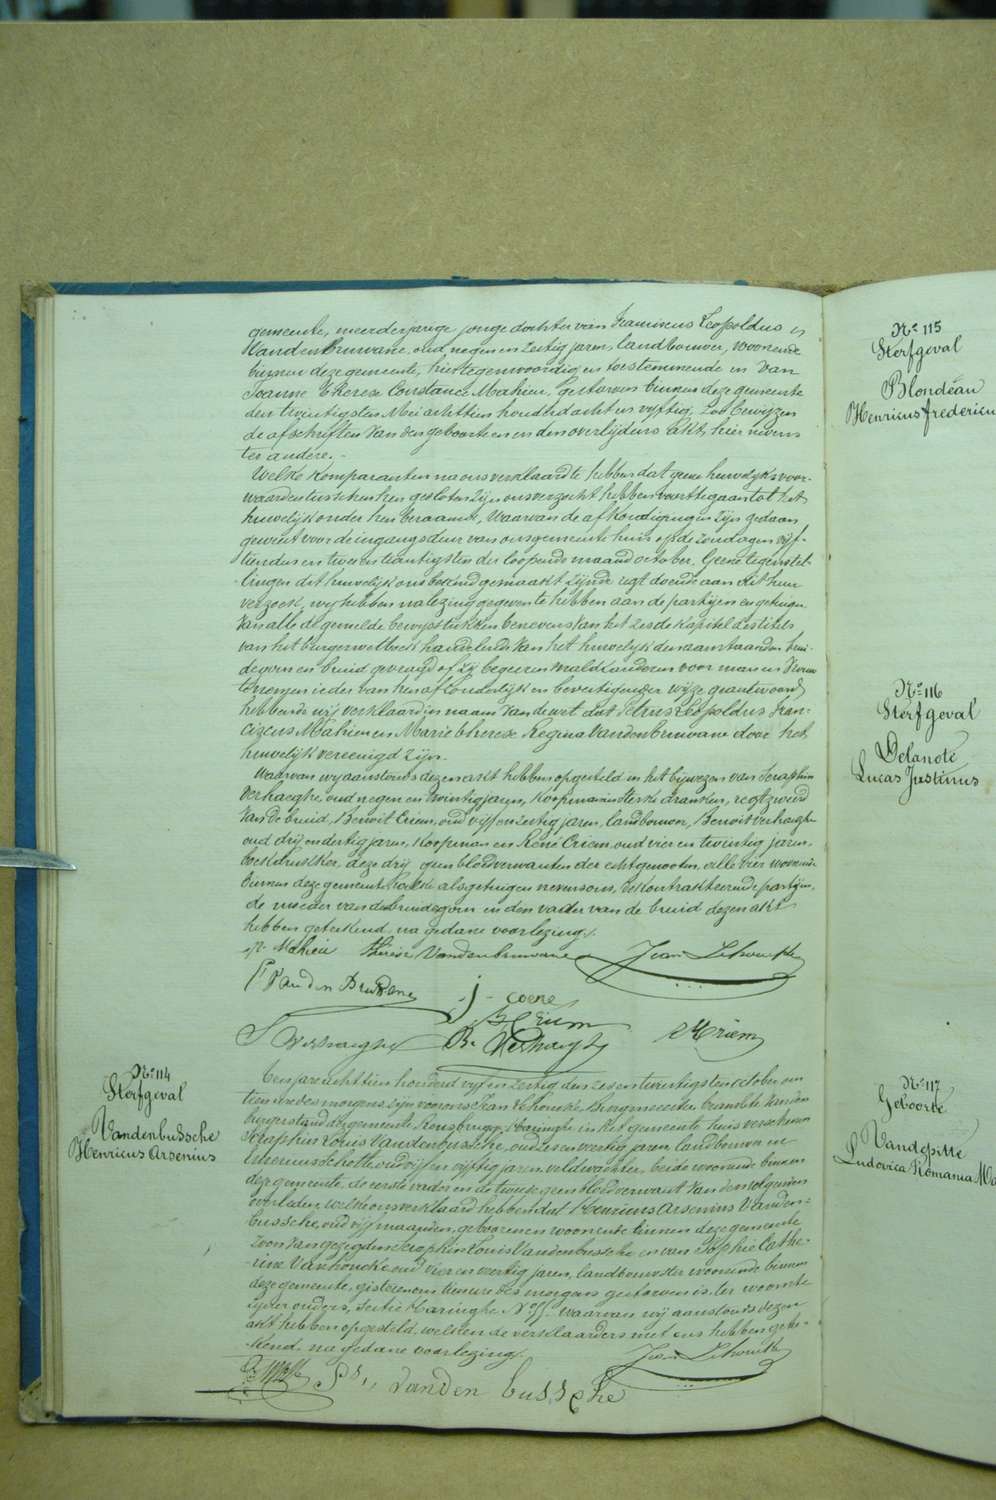 gemeente, meerderjarige jonge dochter van Franciscus Leopoldus
Vandenbruwane, oud negen en zestig jaren, landbouwer, woonende
binnen deze gemeente, hier tegenwoordig en toestemmende en van
Joanne Therese Constance Mahieu, gestorven binnen deze gemeente
den twintigsten Mei achttien honderd acht en vyftig, Zoo bewyzen
de afschriften van den geboorte en en den overlydens akt, hier nevens
ter andere.-
Welke komparanten na ons verklaard te hebben dat geene huwelyks voor-
waarden tusschen hen gesloten zyn ons verzocht hebben voort te gaan tot het
huwelyk onder hen beraamt, waarvan de afkondigingen zyn gedaan
geweest voor de ingangsdeur van ons gemeente huis op de zondagen vyf-
tienden en twee en twintigsten der loopende maand october. Geene tegenstel-
lingen dit huwelyk ons bekend gemaakt zynde regt doende aan dit hun
verzoek, wy hebben na lezing gegeven te hebben aan de partyen en getuigen
van alle de gemelde bewysstukken benevens van het zesde kapitel des titels
van het burgerwetboek handelende van het huwelyk den aanstaanden brui-
degom en bruid gevraagd of zy begeeren malkanderen voor man en vrouw
te nemen ieder van hen afzonderlyk en bevestigender wyze geantwoord
hebbende wy verklaard in naam van de wet dat Petrus Leopoldus Fran-
ciscus Mahieu en Marie Therese Regina Vandenbruwane door het
huwelyk vereenigd zyn.
Waarvan wy aanstonds dezen akt hebben opgesteld in het bywezen van Seraphin
Verhaeghe, oud negen en twintig jaren, koopman in sterke dranken, regtzweerd
van de bruid, Benoit Criem, oud vyf en zestig jaren, landbouwer, Benoit Verhaeghe
oud dry en dertig jaren, koopman en René Criem, oud vier en twintig jaren
boekdrukker, deze dry geen bloedverwanten der echtgenooten, alle vier woonende
binnen deze gemeente welke als getuigen nevens ons, de kontrakteerende partyen,
de moeder van de bruidegom en den vader van de bruid dezen akt
hebben geteekend, na gedane voorlezing.
p. Mahieu Thérèse Vandenbruwane Jean Lehoucke
F Vanden Bruwane j. coene
B Criem
S Verhaeghe Be Verhaeghe R Criem
N° 114
Sterfgeval
Vandenbussche
Henricus Arsenius
Ten jare achttien honderd vyf en zestig den zes en twintigsten october om
tien ure des morgens, zyn voor ons Jean Lehoucke, Burgmeester, beambte van den
burgerstand der gemeente Rousbrugge-Haringhe in het gemeente huis verschenen
Seraphin Louis Vandenbussche, oud zes en veertig jaren, landbouwer en
oud vyf en vyftig jaren, veldwachter, beide woonende binnen
deze gemeente, de eerste vader en de tweede geen bloedverwant van den volgenden
overleden, welke ons verklaard hebben dat Henricus Arsenius Vanden-
bussche, oud vyf maanden, geboren en woonende binnen deze gemeente
zoon van gezegden Seraphin Louis Vandenbussche en van Sophie Cathe-
rine Vanhoucke oud vier en veertig jaren, landbouwster woonende binnen
deze gemeente, gisteren om tien ure des morgens gestorven is, ter woonste
zyner ouders, sectie Haringhe N° 55. waarvan wy aanstonds dezen
akt hebben opgesteld, welken de verklaarders met ons hebben getee-
kend, na gedane voorlezing.
Jean Lehoucke
vanden bussche
N° 115
Sterfgeval
Blondéau
Henricus fredericu
N° 116
Sterfgeval
Delanote
Lucas Justinus
N° 117
Geboorte
Vandepitte
Ludovica Romania Ma